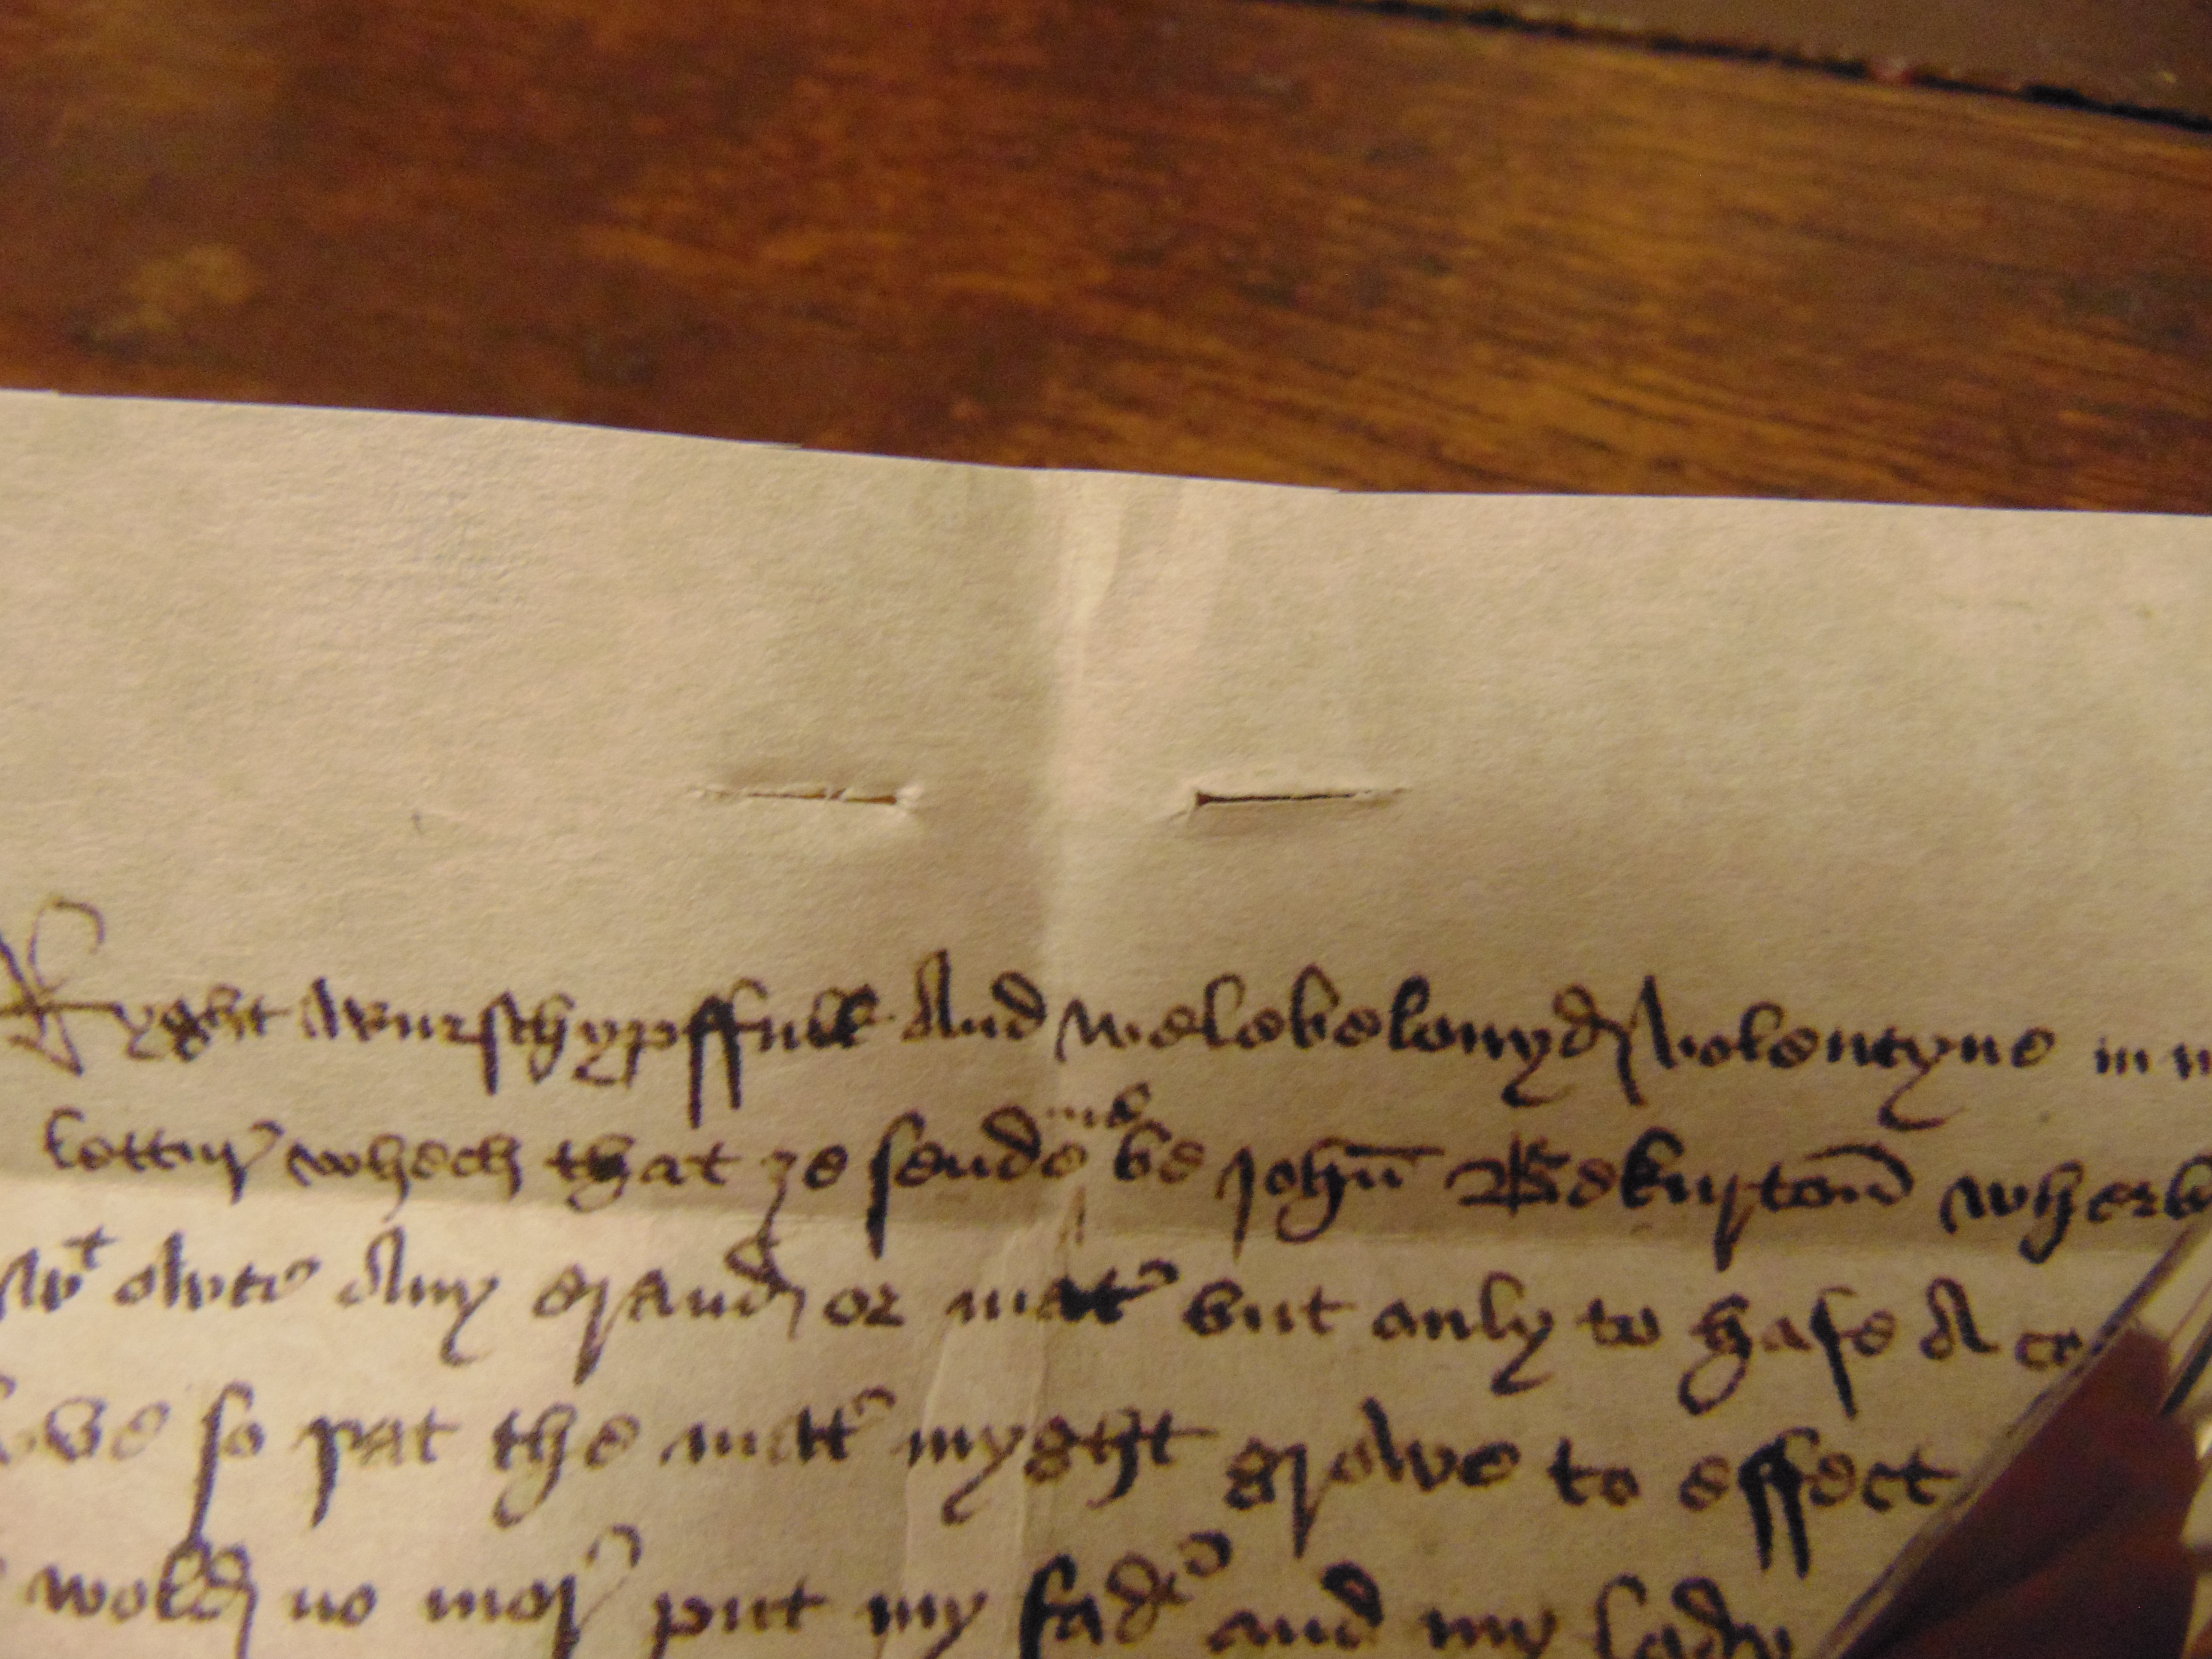 Ryght wurschypffull And welebelouyd volentyne in
lettur whech that ȝe sende me be John Bekurton wherb
wt owte Any eraund or mater but only to hafe A co
so þat the matter myght growe to effect
wold no mor put my fader and my lady